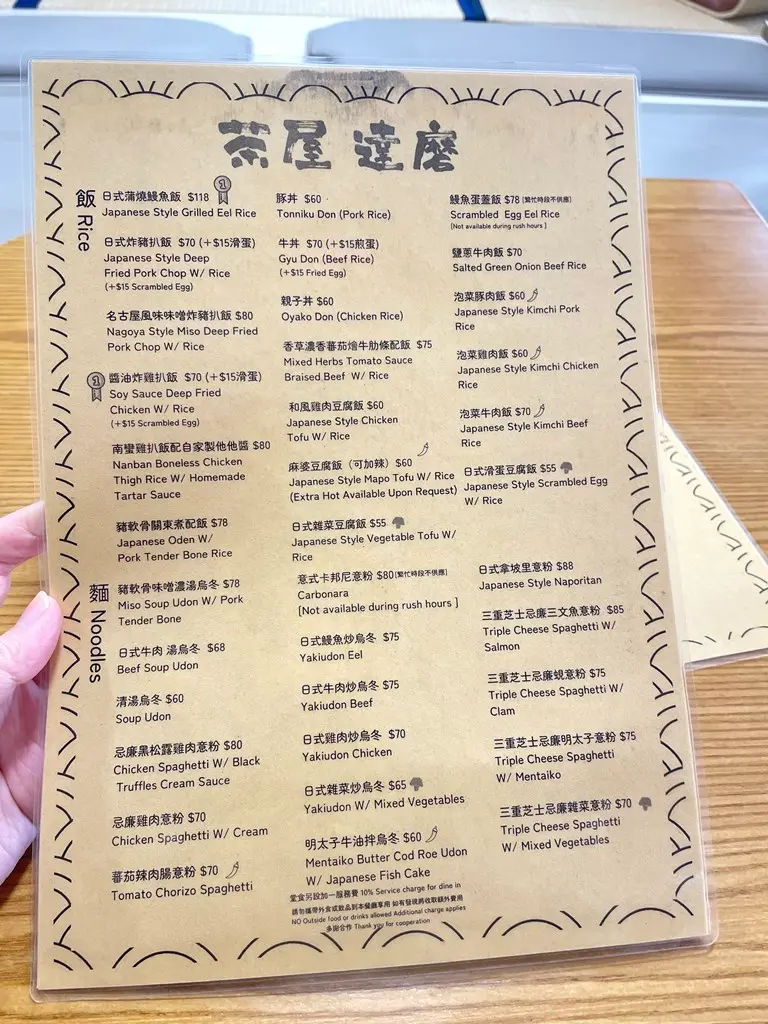 茶屋 達磨
飯 Rice
日式蒲燒鰻魚飯 $118 1
Japanese Style Grilled Eel Rice
日式炸豬扒飯 $70 (+$15滑蛋)
Japanese Style Deep
Fried Pork Chop W/ Rice
(+$15 Scrambled Egg)
名古屋風味味噌炸豬扒飯 $80
Nagoya Style Miso Deep Fried
Pork Chop W/ Rice
1 醬油炸雞扒飯 $70 (+$15滑蛋)
Soy Sauce Deep Fried
Chicken W/ Rice
(+$15 Scrambled Egg)
南蠻雞扒飯配自家製他他醬 $80
Nanban Boneless Chicken
Thigh Rice W/ Homemade
Tartar Sauce
豬軟骨關東煮配飯 $78
Japanese Oden W/
Pork Tender Bone Rice
豚丼 $60
Tonniku Don (Pork Rice)
牛丼 $70 (+$15煎蛋)
Gyu Don (Beef Rice)
(+$15 Fried Egg)
親子丼 $60
Oyako Don (Chicken Rice)
香草濃香蕃茄燴牛肋條配飯 $75
Mixed Herbs Tomato Sauce
Braised Beef W/ Rice
和風雞肉豆腐飯 $60
Japanese Style Chicken
Tofu W/ Rice
麻婆豆腐飯（可加辣）$60
Japanese Style Mapo Tofu W/ Rice
(Extra Hot Available Upon Request)
日式雜菜豆腐飯 $55
Japanese Style Vegetable Tofu W/
Rice
鰻魚蛋蓋飯 $78 [繁忙時段不供應]
Scrambled Egg Eel Rice
[Not available during rush hours ]
鹽蔥牛肉飯 $70
Salted Green Onion Beef Rice
泡菜豚肉飯 $60
Japanese Style Kimchi Pork
Rice
泡菜雞肉飯 $60
Japanese Style Kimchi Chicken
Rice
泡菜牛肉飯 $70
Japanese Style Kimchi Beef
Rice
日式滑蛋豆腐飯 $55
Japanese Style Scrambled Egg
W/ Rice
麵 Noodles
豬軟骨味噌濃湯烏冬 $78
Miso Soup Udon W/ Pork
Tender Bone
日式牛肉 湯烏冬 $68
Beef Soup Udon
清湯烏冬 $60
Soup Udon
忌廉黑松露雞肉意粉 $80
Chicken Spaghetti W/ Black
Truffles Cream Sauce
忌廉雞肉意粉 $70
Chicken Spaghetti W/ Cream
蕃茄辣肉腸意粉 $70
Tomato Chorizo Spaghetti
意式卡邦尼意粉 $80 [繁忙時段不供應]
Carbonara
[Not available during rush hours ]
日式鰻魚炒烏冬 $75
Yakiudon Eel
日式牛肉炒烏冬 $75
Yakiudon Beef
日式雞肉炒烏冬 $70
Yakiudon Chicken
日式雜菜炒烏冬 $65
Yakiudon W/ Mixed Vegetables
明太子牛油拌烏冬 $60
Mentaiko Butter Cod Roe Udon
W/ Japanese Fish Cake
日式拿坡里意粉 $88
Japanese Style Naporitan
三重芝士忌廉三文魚意粉 $85
Triple Cheese Spaghetti W/
Salmon
三重芝士忌廉蜆意粉 $75
Triple Cheese Spaghetti W/
Clam
三重芝士忌廉明太子意粉 $75
Triple Cheese Spaghetti
W/ Mentaiko
三重芝士忌廉雜菜意粉 $70
Triple Cheese Spaghetti
W/ Mixed Vegetables
堂食另設加一服務費 10% Service charge for dine in
請勿攜帶外食或飲品到本餐廳享用 如有發現將收取額外費用
NO Outside food or drinks allowed Additional charge applies
多謝合作 Thank you for cooperation